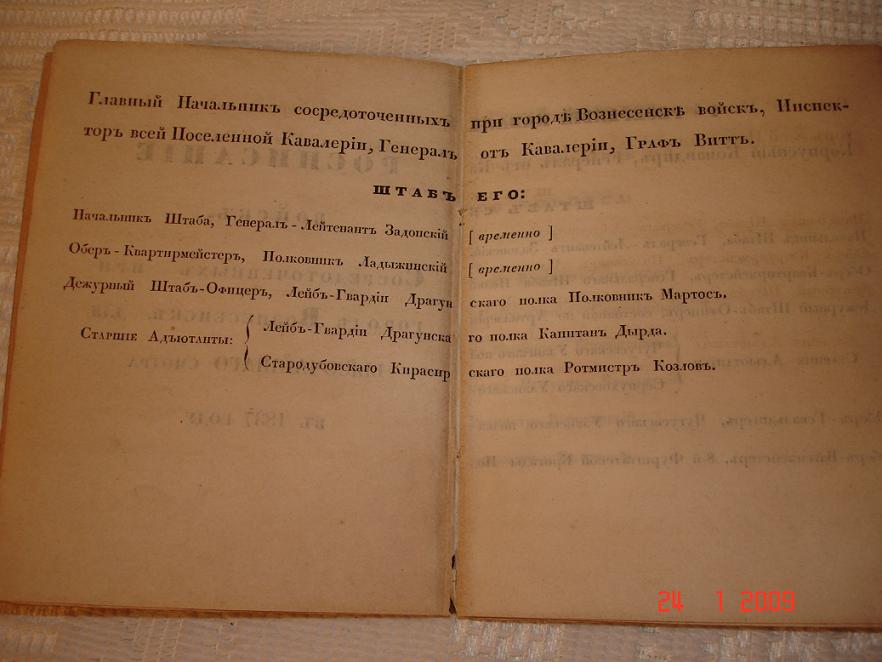 Главный Начальникъ сосредоточенныхъ при городѣ Вознесенскѣ войскъ, Инспек-
торъ всей Поселенной Кавалеріи, Генералъ отъ Кавалеріи, Графъ Виттъ.
ШТАБЪ ЕГО:
Начальникъ Штаба, Генералъ-Лейтенантъ Задонскій [временно]
Оберъ-Квартирмейстеръ, Полковникъ Ладыжинскій [временно]
Дежурный Штабъ-Офицеръ, Лейбъ-Гвардіи Драгунскаго полка Полковникъ Мартосъ.
Старшіе Адъютанты: { Лейбъ-Гвардіи Драгунскаго полка Капитанъ Дырда.
Стародубовскаго Кирасирскаго полка Ротмистръ Козловъ.
24 1 2009